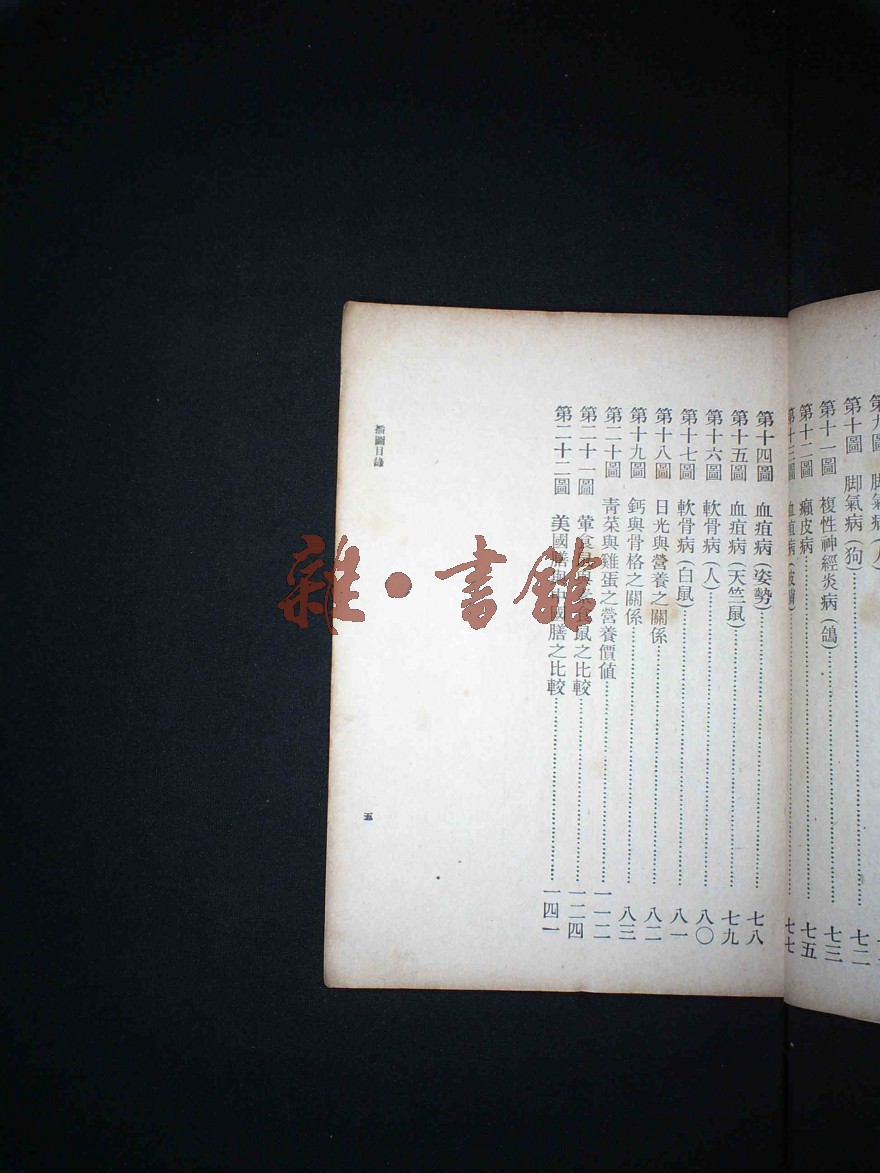 第十圖　脚氣病(狗)……………七二
第十一圖　複性神經炎病(鴿)……………七三
第十二圖　癩皮病……………七五
第十三圖　血疽病……………七七
第十四圖　血疽病(姿勢)……………七八
第十五圖　血疽病(天竺鼠)……………七九
第十六圖　軟骨病(人)……………八〇
第十七圖　軟骨病(白鼠)……………八一
第十八圖　日光與營養之關係……………八二
第十九圖　鈣與骨格之關係……………八三
第二十圖　靑菜與雞蛋之營養價値……………一一二
第二十一圖　葷食鼠與素食鼠之比較……………一二四
第二十二圖　美國膳與中國膳之比較……………一四一
插圖目錄
五
雜·書館